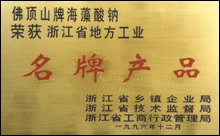 佛顶山牌海藻酸钠
荣获浙江省地方工业
名牌产品
浙江省乡镇企业局
浙江省技术监督局
浙江省工商行政管理局
一九九六年十二月